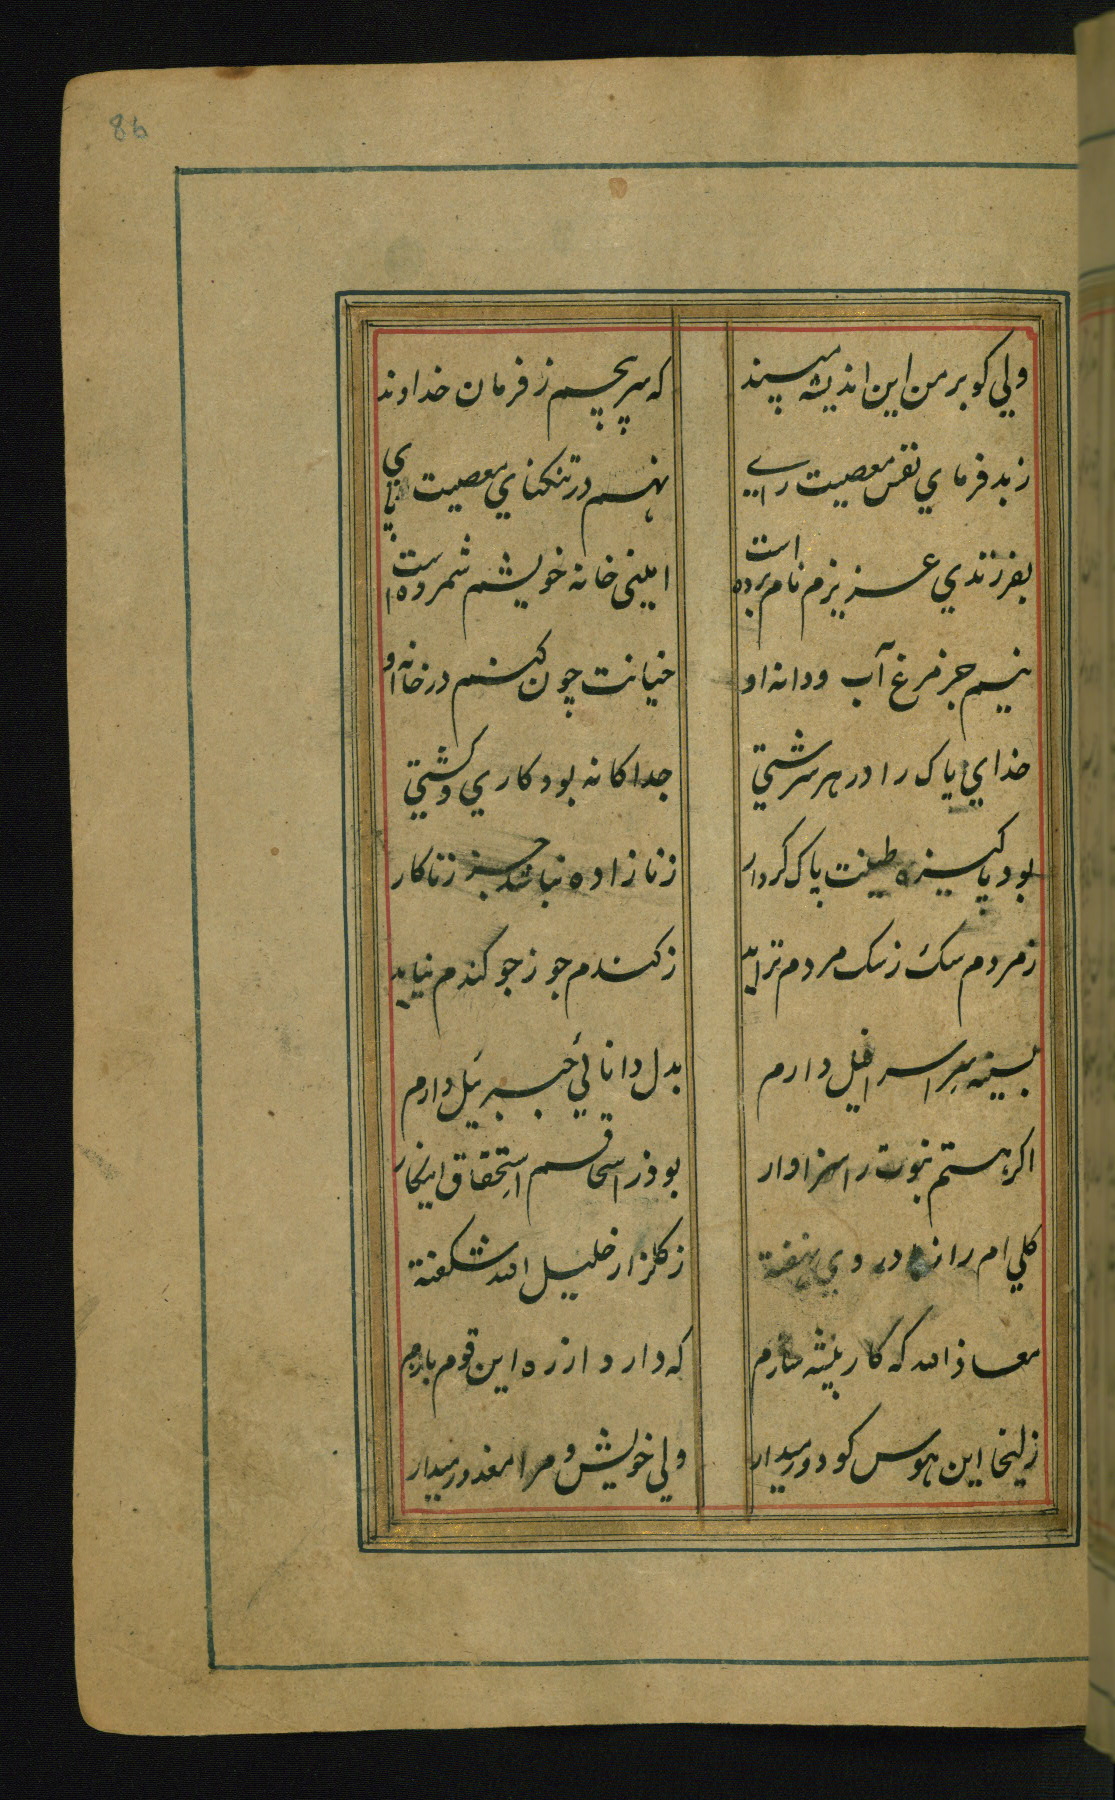 86
ولي كو بر من اين انديشه مپسند که سر پيچم ز فرمان خداوند
ز بد فرماي نفس معصيت راي نهم در تنكناي معصيت پاي
بفرزندي عزيزم نام برده است امين خانه خويشم شمرده است
نيم جز مرغ آب ودانه او خيانت چون كنم در خانه او
خداي پاك را در هر سرشتي جداكانه بود كاري وكشتي
بود پاكيزه طينت پاك كردار زنا زاده نباشد جز زنا كار
ز مردم سك ز سك مردم نزايد ز كندم جو ز جو كندم نيايد
بسينه سِر اسرافيل دارم بدل دانائي جبرئيل دارم
اكر هستم نبوت را سزاوار بود ز اسحاقم استحقاق اينكار
كلي ام راز در وي نهفته ز كلزار خليل الله شكفته
معاذ الله كه كار پيشه سازم كه دارد از ره اين قوم بازم
زليخا اين هوس كو دور ميدار ولي خويش و مرا معذور ميدار